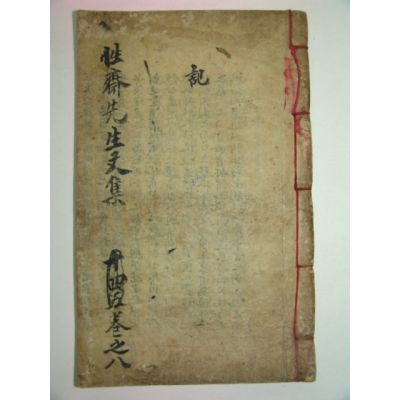 記
性齋先生文集 四卷之八